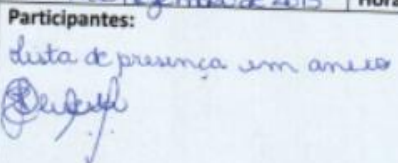 de 2013 Hora
Participantes:
Lista de presença em anexo